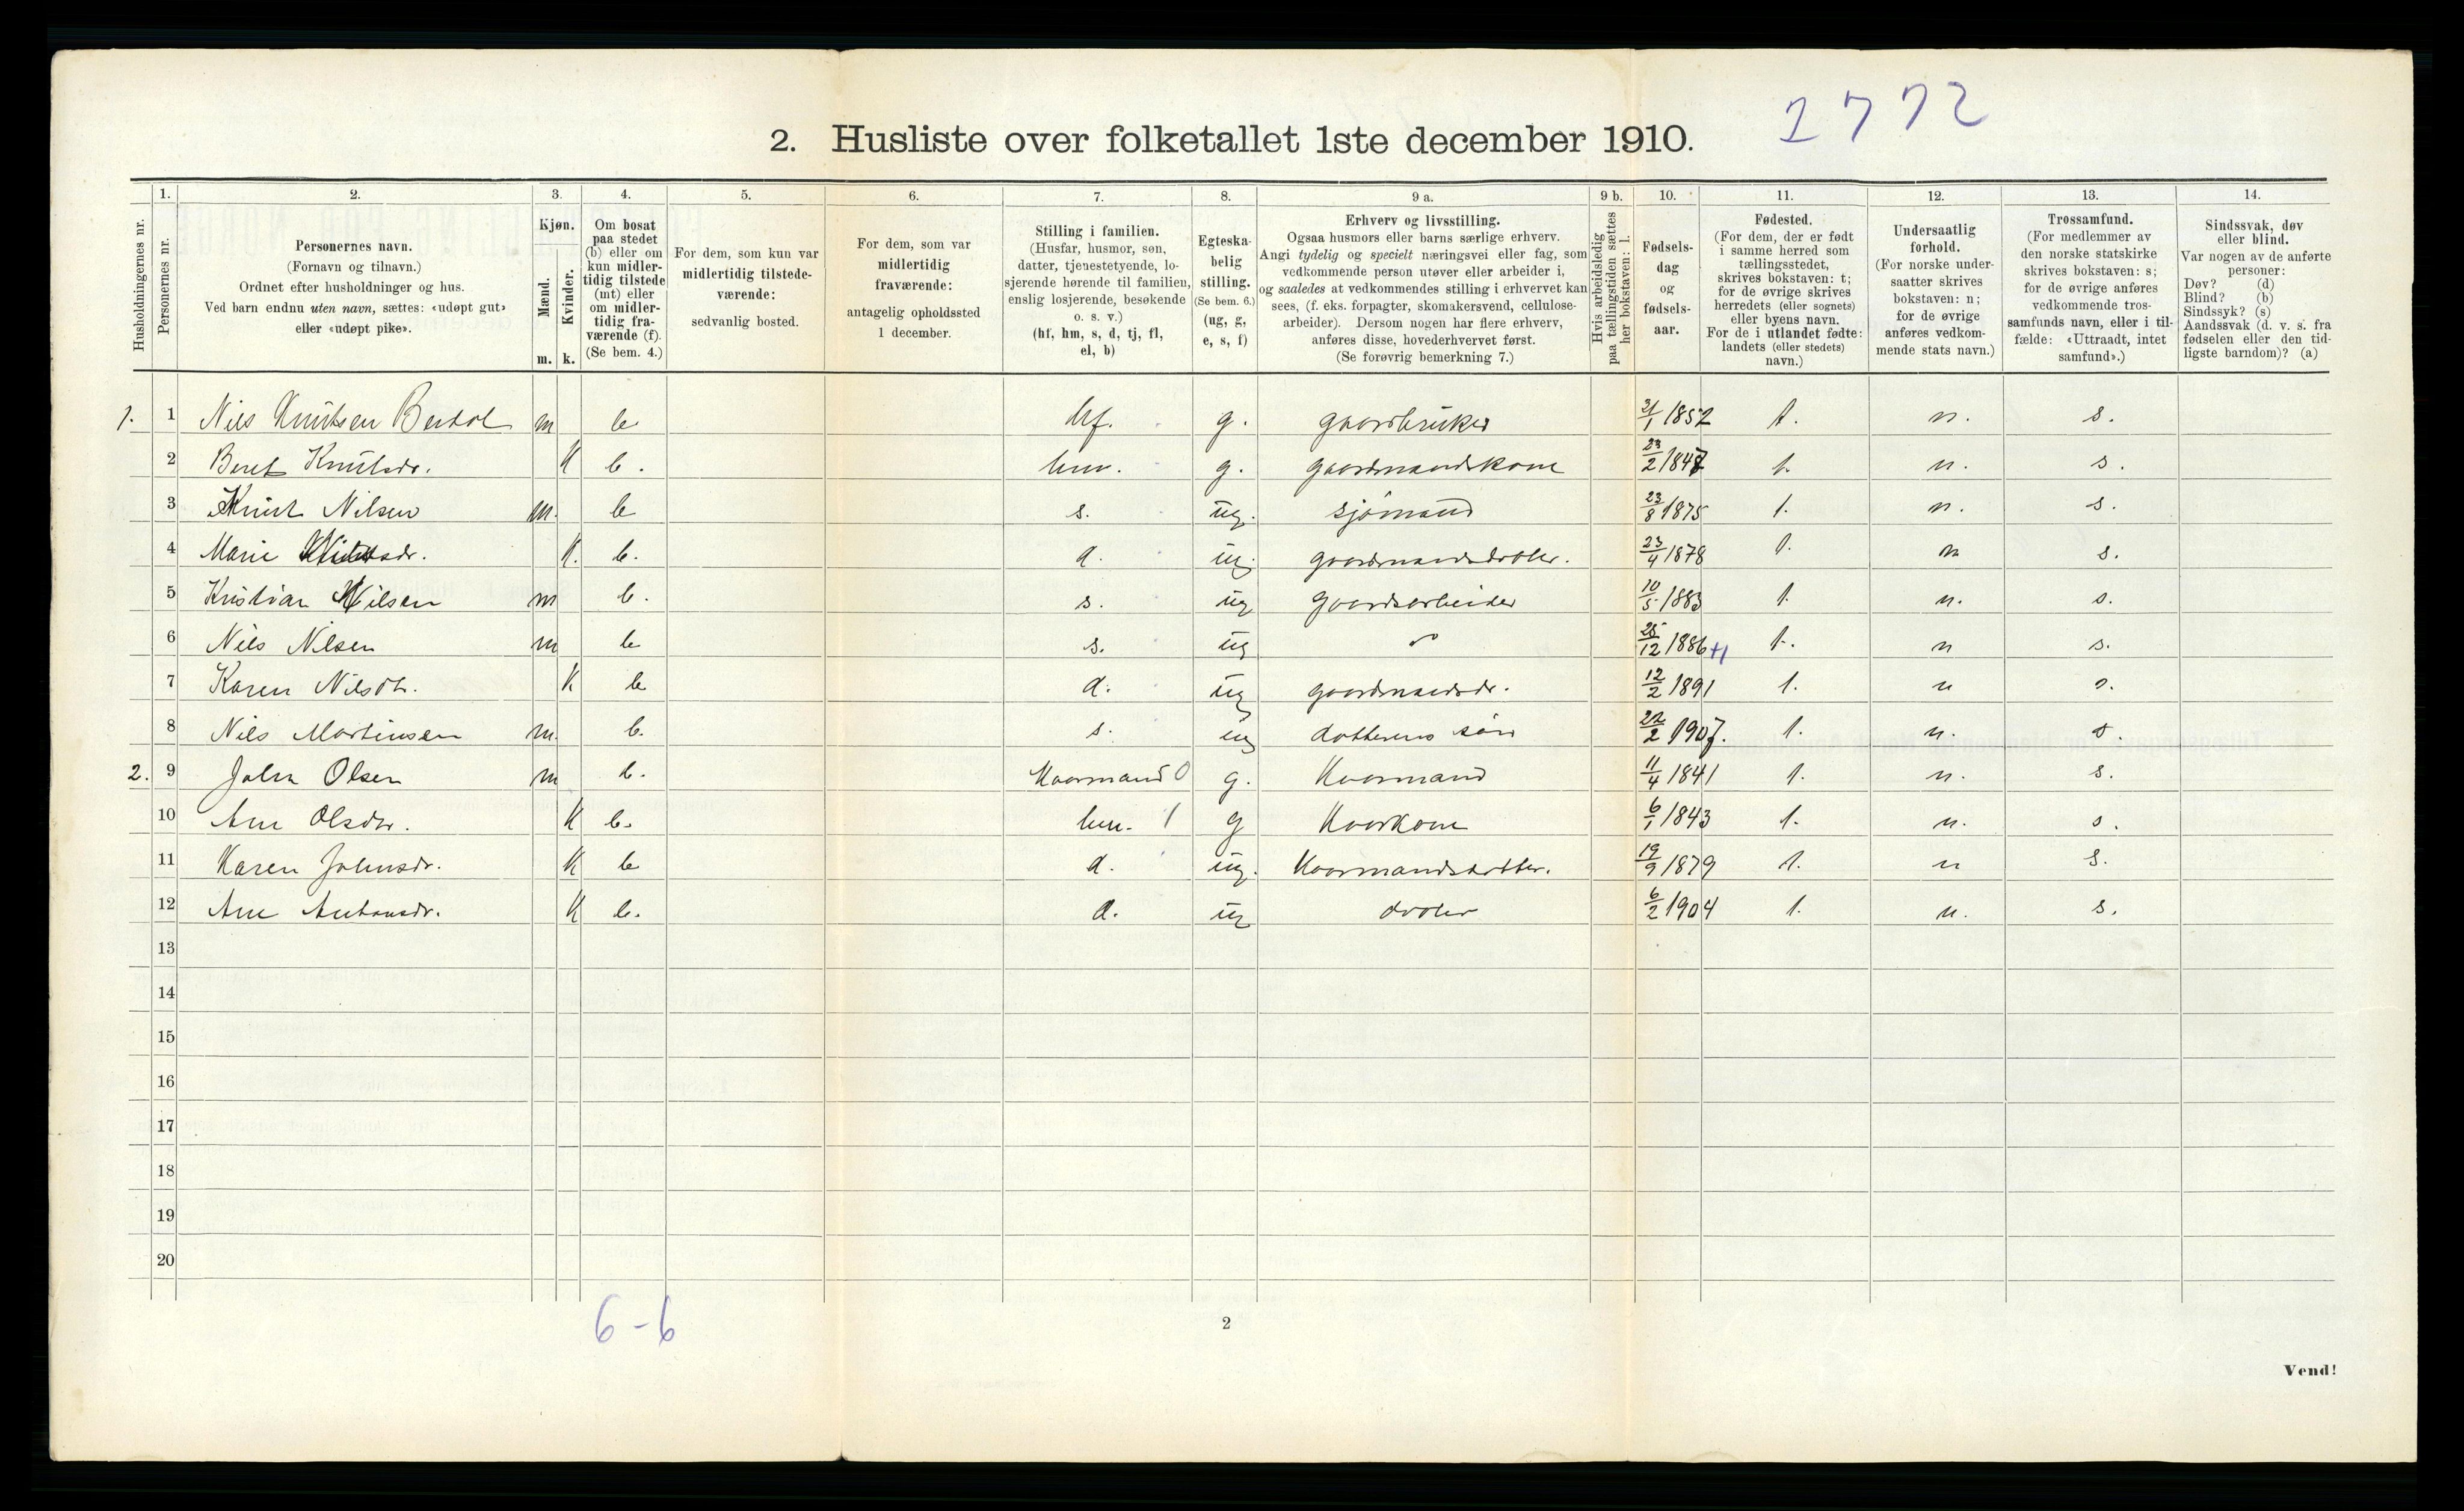 2772
2. Husliste over folketallet 1ste december 1910.
1. 2. 3. 4. 5. 6. 7. 8. 9 a. 9 b. 10. 11. 12. 13. 14.
Husholdningernes nr.
Personernes nr.
Personernes navn.
(Fornavn og tilnavn.)
Ordnet efter husholdninger og hus.
Ved barn endnu uten navn, sættes: «udøpt gut»
eller «udøpt pike».
Kjøn.
Mænd.
Kvinder.
m. k.
Om bosat
paa stedet
(b) eller om
kun midler-
tidig tilstede
(mt) eller
om midler-
tidig fra-
værende (f).
(Se bem. 4.)
For dem, som kun var
midlertidig tilstede-
værende:
sedvanlig bosted.
For dem, som var
midlertidig
fraværende:
antagelig opholdssted
1 december.
Stilling i familien.
(Husfar, husmor, søn,
datter, tjenestetyende, lo-
sjerende hørende til familien,
enslig losjerende, besøkende
o. s. v.)
(hf, hm, s, d, tj, fl,
el, b)
Egteska-
belig
stilling.
(Se bem. 6.)
(ug, g,
e, s, f)
Erhverv og livsstilling.
Ogsaa husmors eller barns særlige erhverv.
Angi tydelig og specielt næringsvei eller fag, som
vedkommende person utøver eller arbeider i,
og saaledes at vedkommendes stilling i erhvervet kan
sees, (f. eks. forpagter, skomakersvend, cellulose-
arbeider). Dersom nogen har flere erhverv,
anføres disse, hovederhvervet først.
(Se forøvrig bemerkning 7.)
Hvis arbeidsledig
paa tællingstiden sættes
her bokstaven: l.
Fødsels-
dag
og
fødsels-
aar.
Fødested.
(For dem, der er født
i samme herred som
tællingsstedet,
skrives bokstaven: t;
for de øvrige skrives
herredets (eller sognets)
eller byens navn.
For de i utlandet fødte:
landets (eller stedets)
navn.)
Undersaatlig
forhold.
(For norske under-
saatter skrives
bokstaven: n;
for de øvrige
anføres vedkom-
mende stats navn.)
Trossamfund.
(For medlemmer av
den norske statskirke
skrives bokstaven: s;
for de øvrige anføres
vedkommende tros-
samfunds navn, eller i til-
fælde: «Uttraadt, intet
samfund».)
Sindssvak, døv
eller blind.
Var nogen av de anførte
personer:
Døv? (d)
Blind? (b)
Sindssyk? (s)
Aandssvak (d. v. s. fra
fødselen eller den tid-
ligste barndom)? (a)
1. 1 Nils Knutsen m b. hf. g. gaardbruker 21/1 1852 t. n. s.
2 Beret Knutsdr. K b. hm. g. gaardmandskone 23/2 1847 t. n. s.
3 Knut Nilsen m. b s. ug. sjømand 23/8 1875 t. n. s.
4 Marie K. b. d. ug. gaardmandsdatter. 23/4 1878 t. n s.
5 Kristian Nilsen m b. s. ug gaardsarbeider 10/5 1883 t. n. s.
6 Nils Nilsen m b s. ug 25/12 1886 +1 t. n s.
7 Karen Nilsdtr. K b d. ug gaardmandsdr. 12/2 1891 t. n s.
8 Nils Martinsen m. b. s. ug datterens søn 22/2 1907. t. n. s.
2. 9 John Olsen m b. Kaarmand 0 g. Kaarmand 11/4 1841 t. n. s.
10 Ane Olsdtr. K b. hm. 1 g Kaarkone 6/1 1843 t. n. s.
11 Karen Johnsdr. K b d. ug. Kaarmandsdatter. 19/9 1879 t. n s.
12 Ane Antonsdr. K b. d. ug datter 6/2 1904 t. n. s.
13
14
15
16
17
18
19
20
6-6
2
Vend!